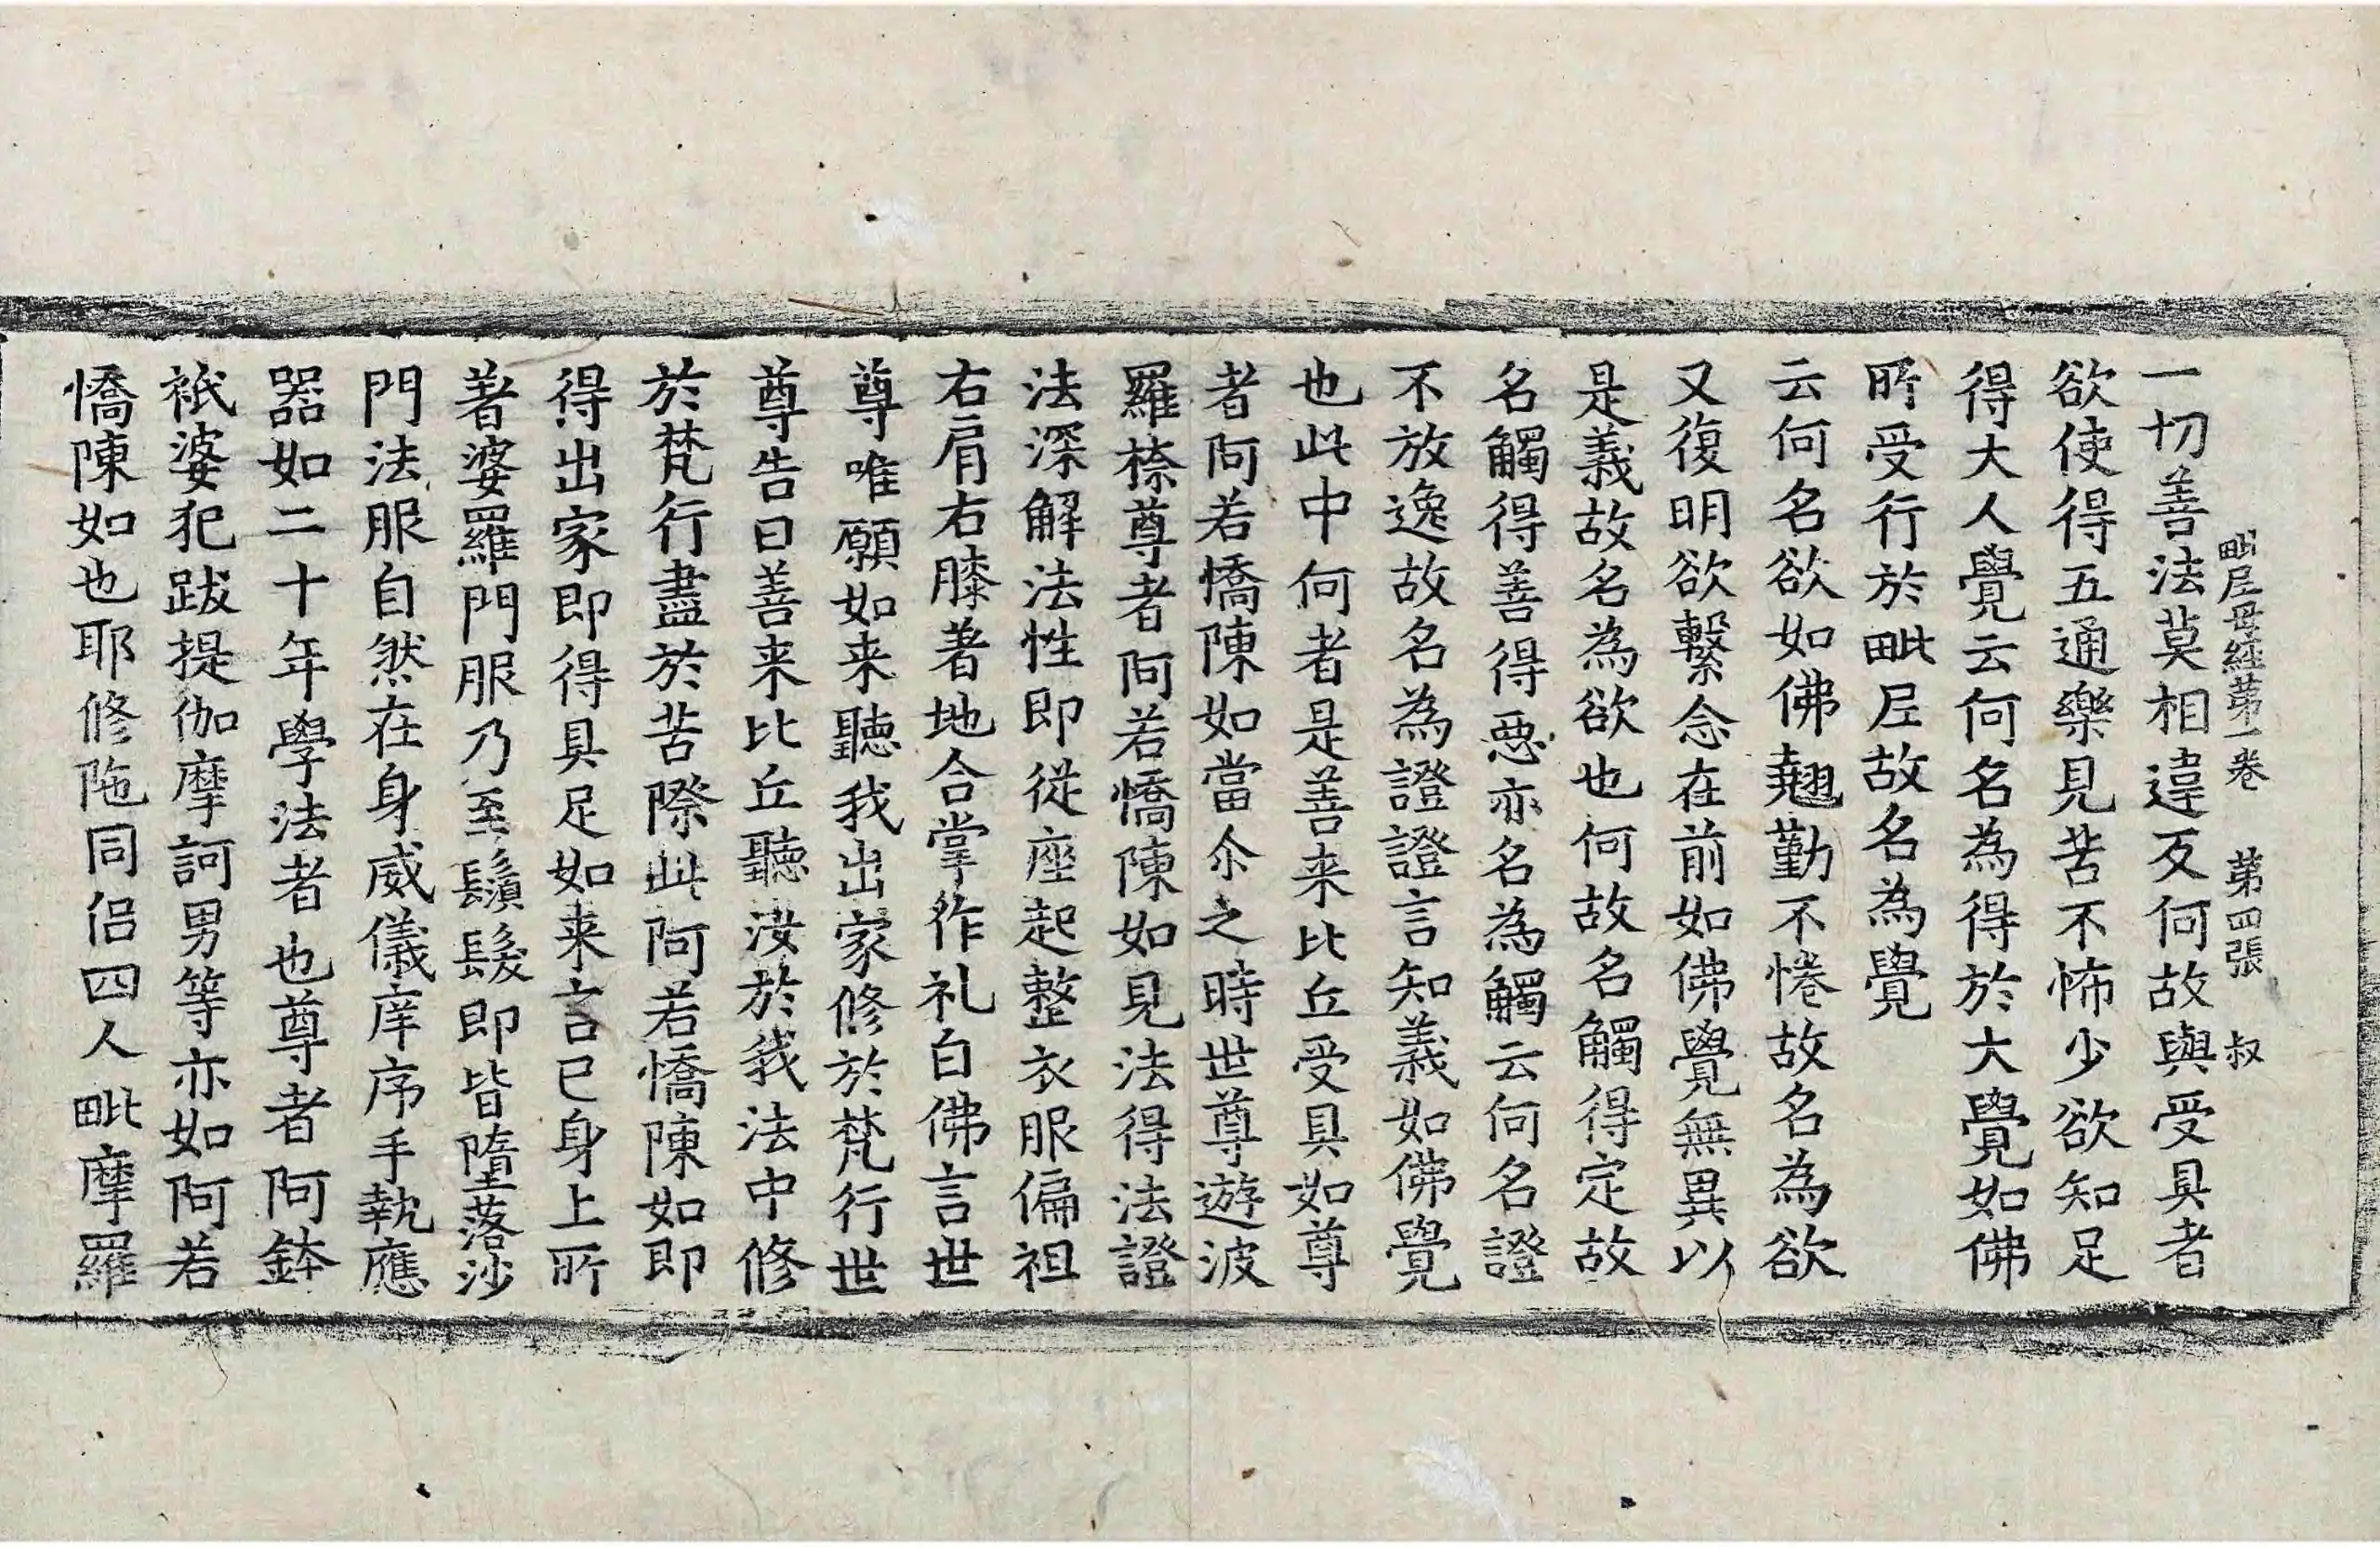 毗尼母經第一卷 第四張 叔
一切善法莫相違反何故與受具者
欲使得五通樂見苦不怖少欲知足
得大人覺云何名為得於大覺如佛
所受行於毗尼故名為覺
云何名欲如佛翹勤不惓故名為欲
又復明欲繫念在前如佛覺無異以
是義故名為欲也何故名觸得定故
名觸得善得惡亦名為觸云何名證
不放逸故名為證證言知義如佛覺
也此中何者是善来比丘受具如尊
者阿若憍陳如當尒之時世尊遊波
羅㮈尊者阿若憍陳如見法得法證
法深解法性即從座起整衣服偏袒
右肩右膝著地合掌作礼白佛言世
尊唯願如来聽我出家修於梵行世
尊告曰善来比丘聽汝於我法中修
於梵行盡於苦際此阿若憍陳如即
得出家即得具足如来言已身上所
著婆羅門服乃至鬚髮即皆墮落沙
門法服自然在身威儀庠序手執應
器如二十年學法者也尊者阿鉢
祇婆犯跋提伽摩訶男等亦如阿若
憍陳如也耶修陁同侶四人毗摩羅